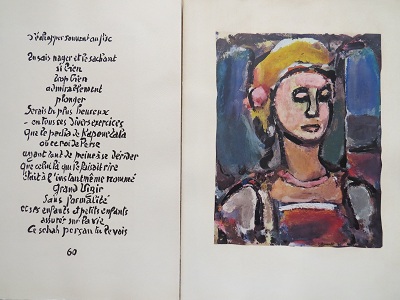 d'échapper souvent au flic
Tu sais nager et le sachant
si bien
trop bien
admirablement
plonger
Serais tu plus heureux
en tous ses divers exercices
Que le pacha de Kapourtala
où ce roi de Perse
ayant tant de peine à se dérider
Que celui là qui le faisait rire
était à l'instant même nommé
Grand Vizir
sans formalité
et ses enfants et petits enfants
assurés sur la vie
Ce schah persan tu le vois
60